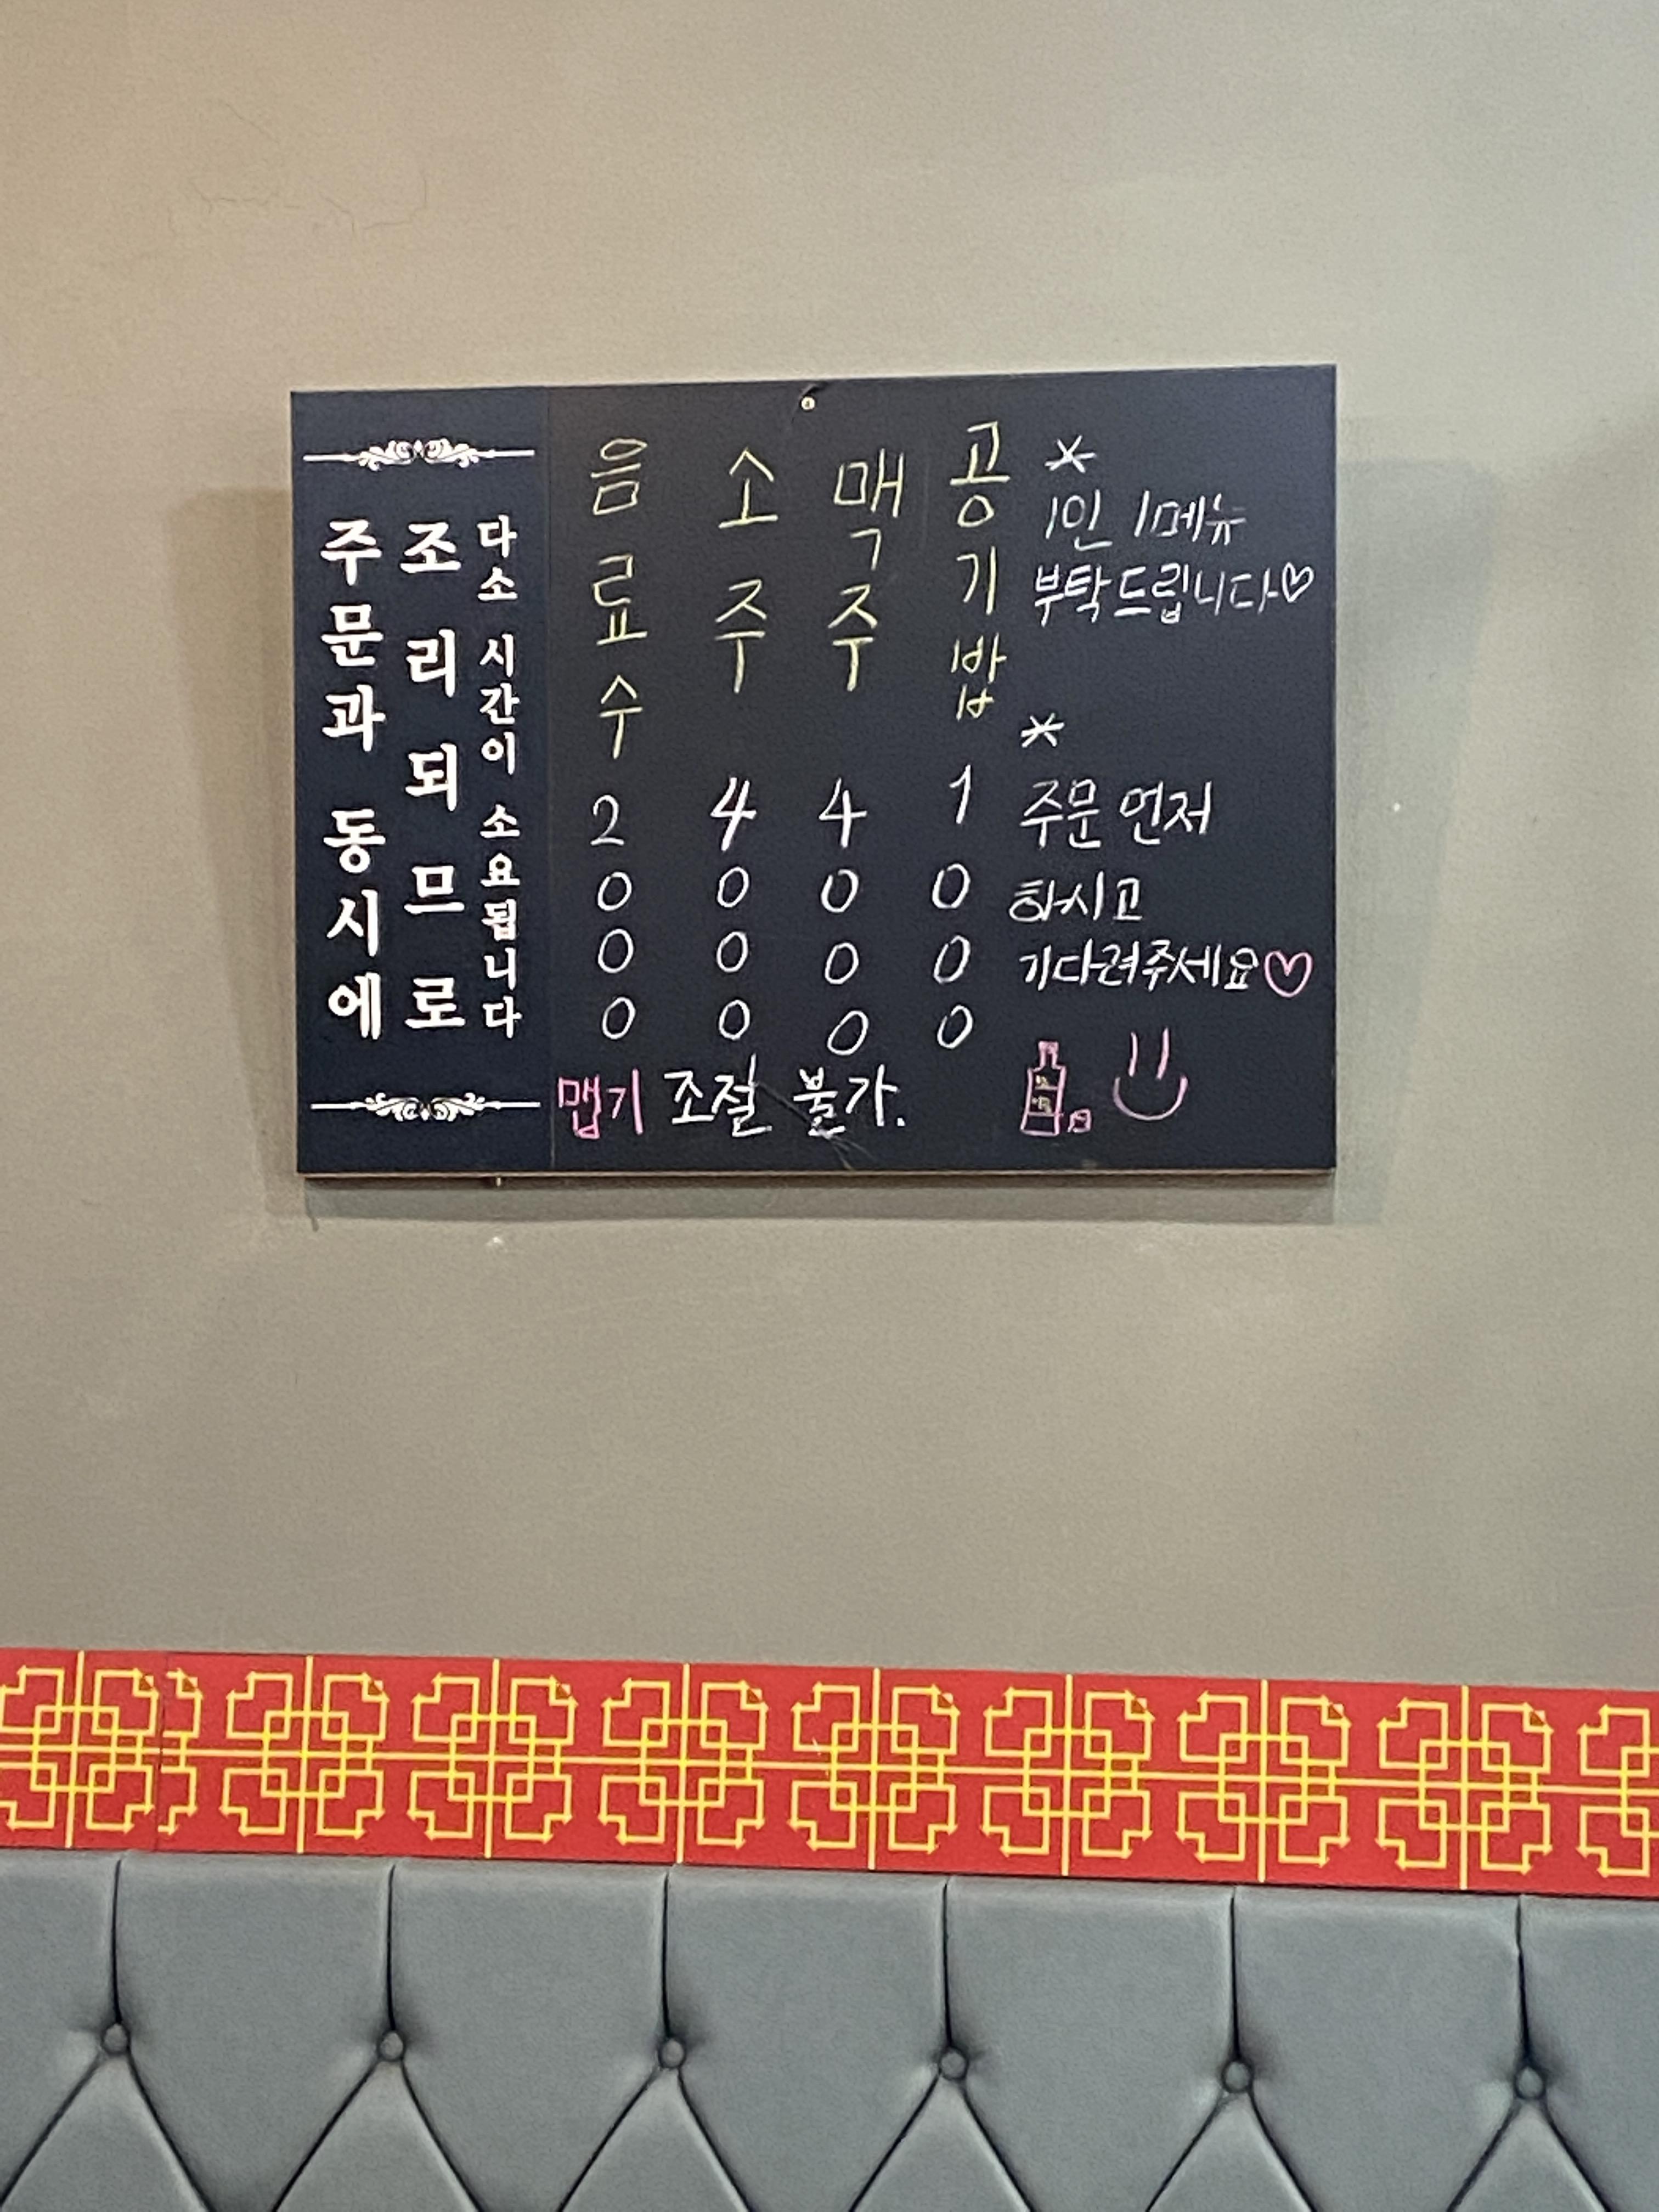 주문과 동시에
조리되므로
다소 시간이 소요됩니다
음료수 2000
소주 4000
맥주 4000
공기밥 1000
맵기 조절 불가.
*
1인 1메뉴
부탁드립니다♡
*
주문 먼저
하시고
기다려주세요♡